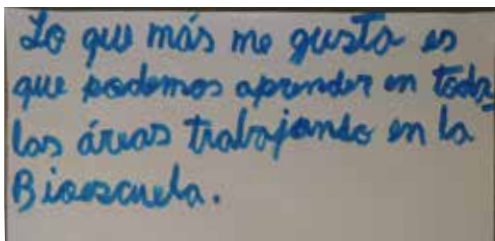 Lo que más me gusta es
que podemos aprender en todas
las áreas trabajando en la
Bioescuela.